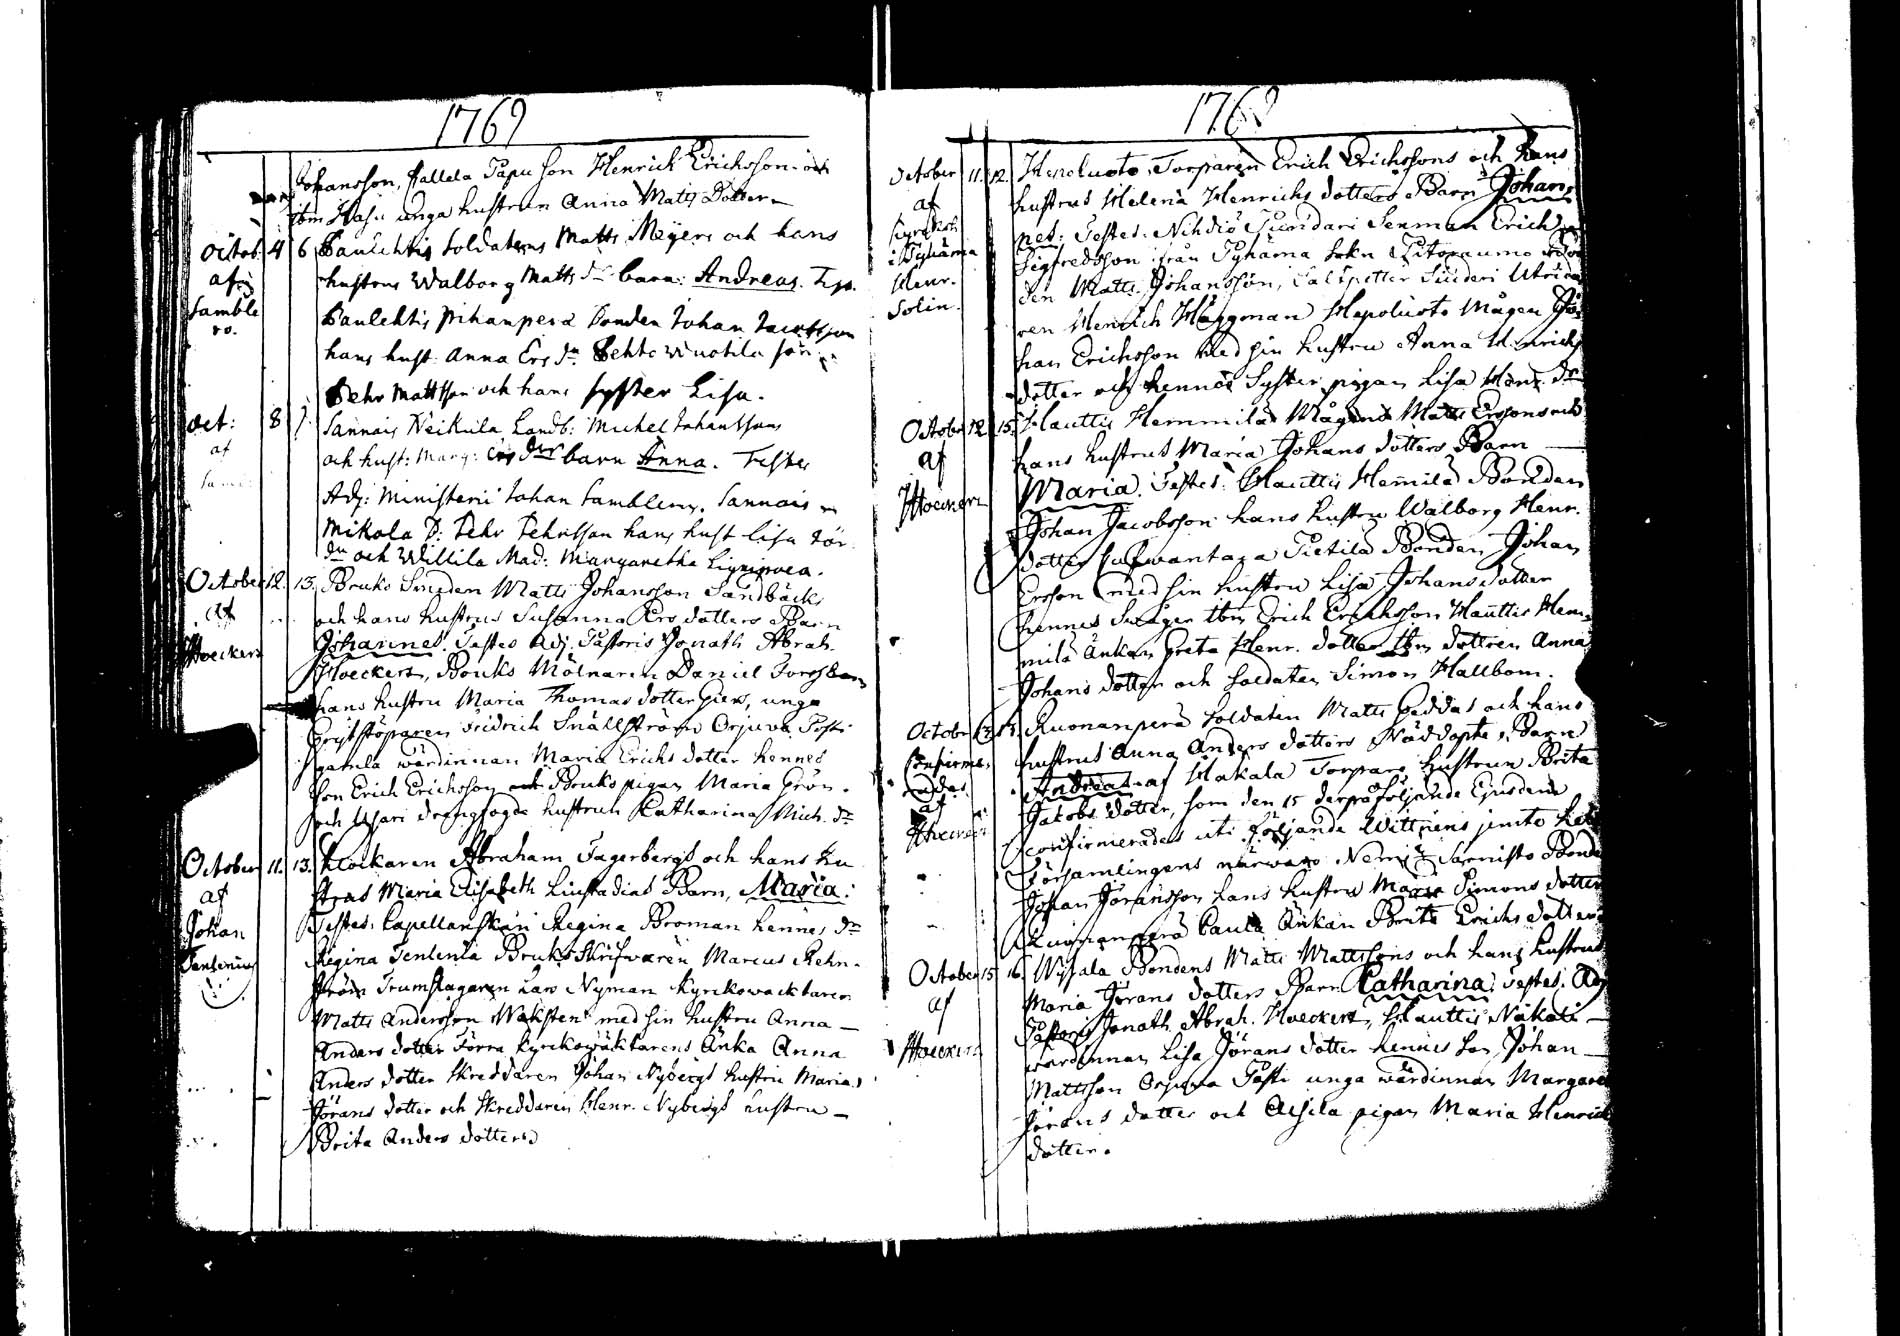 1769
Johansson, Hallela Papu Son Henrick Erichsson och
ibm Hasu unga hustrun Anna Matts Dotter
Octob: 4 6 Paulehtis Soldatens Matts Meyers och hans
af hustrus Walborg Matts dr barn: Andreas. Test.
Samble
ro. Paulehtis pihanperä bonden Johan Jacobsson
hans hust. Anna Ers dr Lehto son
Pehr Mattsson och hans syster Lisa.
Oct: 8 Sannais Neikula Landb: Michel Johanssons
af och hust: Marg: Ers drs barn Anna. Testes
Adj: Ministerii Johan Samblerus. Sannais
Mikola B: Pehr Pehrsson hans hust Lisa Jör
dr och Willila Mad: Margaretha
October 12. 13. Bruks Smeden Matts Johansson Sandbäcks
af och hans hustrus Susanna Ers dotters Barn
Hoeckert Johannes. Testes Adj. Pastoris Jonath Abrah.
Hoeckert, Bruks Mölnaren Daniel Forsbom
hans hustru Maria Thomas dotter Giers, unga
Fridrich Snällström Orjuva Posti
gamla wärdinnan Maria Erichs dotter hennes
Son Erich Erichsson och Bruks pigan Maria Grön.
och Drengfogde hustrun Catharina Mich. dr
October 11. 13. Klockaren Abraham Fagerbergs och hans hu
af strus Maria Elisabeth Barn, Maria:
Johan Testes: Capellanskan Regina Broman hennes dr
Regina Bruks Skrifwaren Marcus Rehn-
ström Trumslagaren Lars Nyman Kyrkowacktaren
Matts Andersson Waksten med sin hustru Anna
Anders dotter Förra Kyrkowäktarens Änka Anna
Anders dotter Skreddaren Johan Nybergs hustru Maria
Jörans dotter och Skreddaren Henr. Nybergs hustru
Brita Anders dotter
1769
October 11. 12. Torparen Erich Erichssons och hans
af hustrus Helena Henrichs dotters Barn Johan-
nes: Testes. Nihdiö Jundari Senman Erich
i Pyhäma Sigfredsson ifrån Pyhäma Sokn
Henr. den Matts Johansson, Salpetter Siuderi
Solin. ren Henrich Häggman Hepoluoto Mågen Jo-
han Erichsson med sin hustru Anna Henrichs
dotter och hennes Syster pigan Lisa Henr. dr
October 12 15. Hauttis Hemmilä Mågens Matts Erssons och
af hans hustrus Maria Johans dotters Barn
Hoeckert Maria. Testes: Hauttis Hemilä Bonden
Johan Jacobsson hans hustru Walborg Henr.
dotter Pietilä Bonden Johan
Ersson med sin hustru Lisa Johans dotter
hennes Swåger ibm Erich Erichsson Hauttis Hem-
milä Änkan Greta Henr. dotter ibm dottren Anna
Johans dotter och Soldaten Simon Hallbom.
October Ruonanperä Soldaten Matts Geddas och hans
confirme- hustrus Anna Anders dotters Nöddöpte Barn
rades Andreas af Hakala Torpare hustrun Brita
af Jakobs dotter, som den 15 derpåföljande Ejusdem
Hoeckert confirmerades uti följande Wittnens jemte hela
Församlingens närwaro. Sarnisto Bonde
Johan Jöransson hans hustru Maria Simons dotter
Ruonanperä Caula Änkan Brita Erichs dotter
October 15 16. Bondens Matts Mattssons och hans hustrus
af Maria Jörans dotters Barn Catharina: Testes: Adj
Hoeckert Pastoris Jonath. Abrah. Hoeckert, Hauttis
wärdinnan Lisa Jörans dotter hennes Son Johan
Mattsson Orjuva Posti unga wärdinnan Margareta
Jörans dotter och pigan Maria Henrichs
dotter.